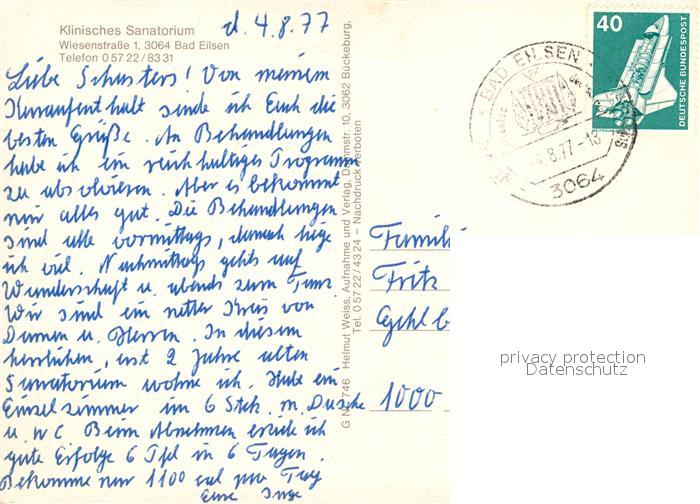 Klinisches Sanatorium
Wiesenstraße 1, 3064 Bad Eilsen
Telefon 0 57 22 / 83 31
d. 4.8.77
Liebe Schusters! Von meinem
Kuraufenthalt sende ich Euch die
besten Grüße. An Behandlungen
habe ich ein reichhaltiges Programm
zu absolvieren. Aber es bekommt
mir alles gut. Die Behandlungen
sind alle vormittags, danach liege
ich viel. Nachmittags gehts auf
Wanderschaft u. abends zum Tanz.
Wir sind ein netter Kreis von
Damen u. Herren. In diesem
herrlichen, erst 2 Jahre alten
Sanatorium wohne ich. Habe ein
Einzelzimmer im 6 Stck. m. Dusche
u. WC Beim Abnehmen erziele ich
gute Erfolge 6 Pfd in 6 Tagen.
Bekomme nur 1100 cal pro Tag
Eure Inge
G NR 746 Helmut Weiss, Aufnahme und Verlag, Dammstr. 10, 3062 Bückeburg,
Tel. 0 57 22 / 43 24 – Nachdruck verboten
BAD EILSEN
4.8.77-18
3064
40
DEUTSCHE BUNDESPOST
Famili
Fritz
Gehlb
1000
privacy protection
Datenschutz